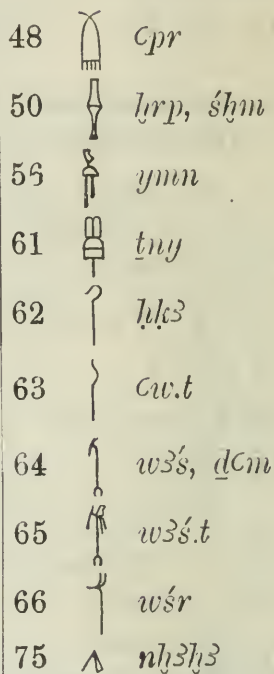 48 𓐠 ꜥpr
50 𓌂 ḫrp, śḫm
56 𓋀 ymn
61 𓋆 ṯny
62 𓋾 ḥḳꜣ
63 𓋿 ꜥw.t
64 𓌀 wꜣś, ḏꜥm
65 𓋉 wꜣś.t
66 𓄊 wśr
75 𓌅 nḫꜣḫꜣ